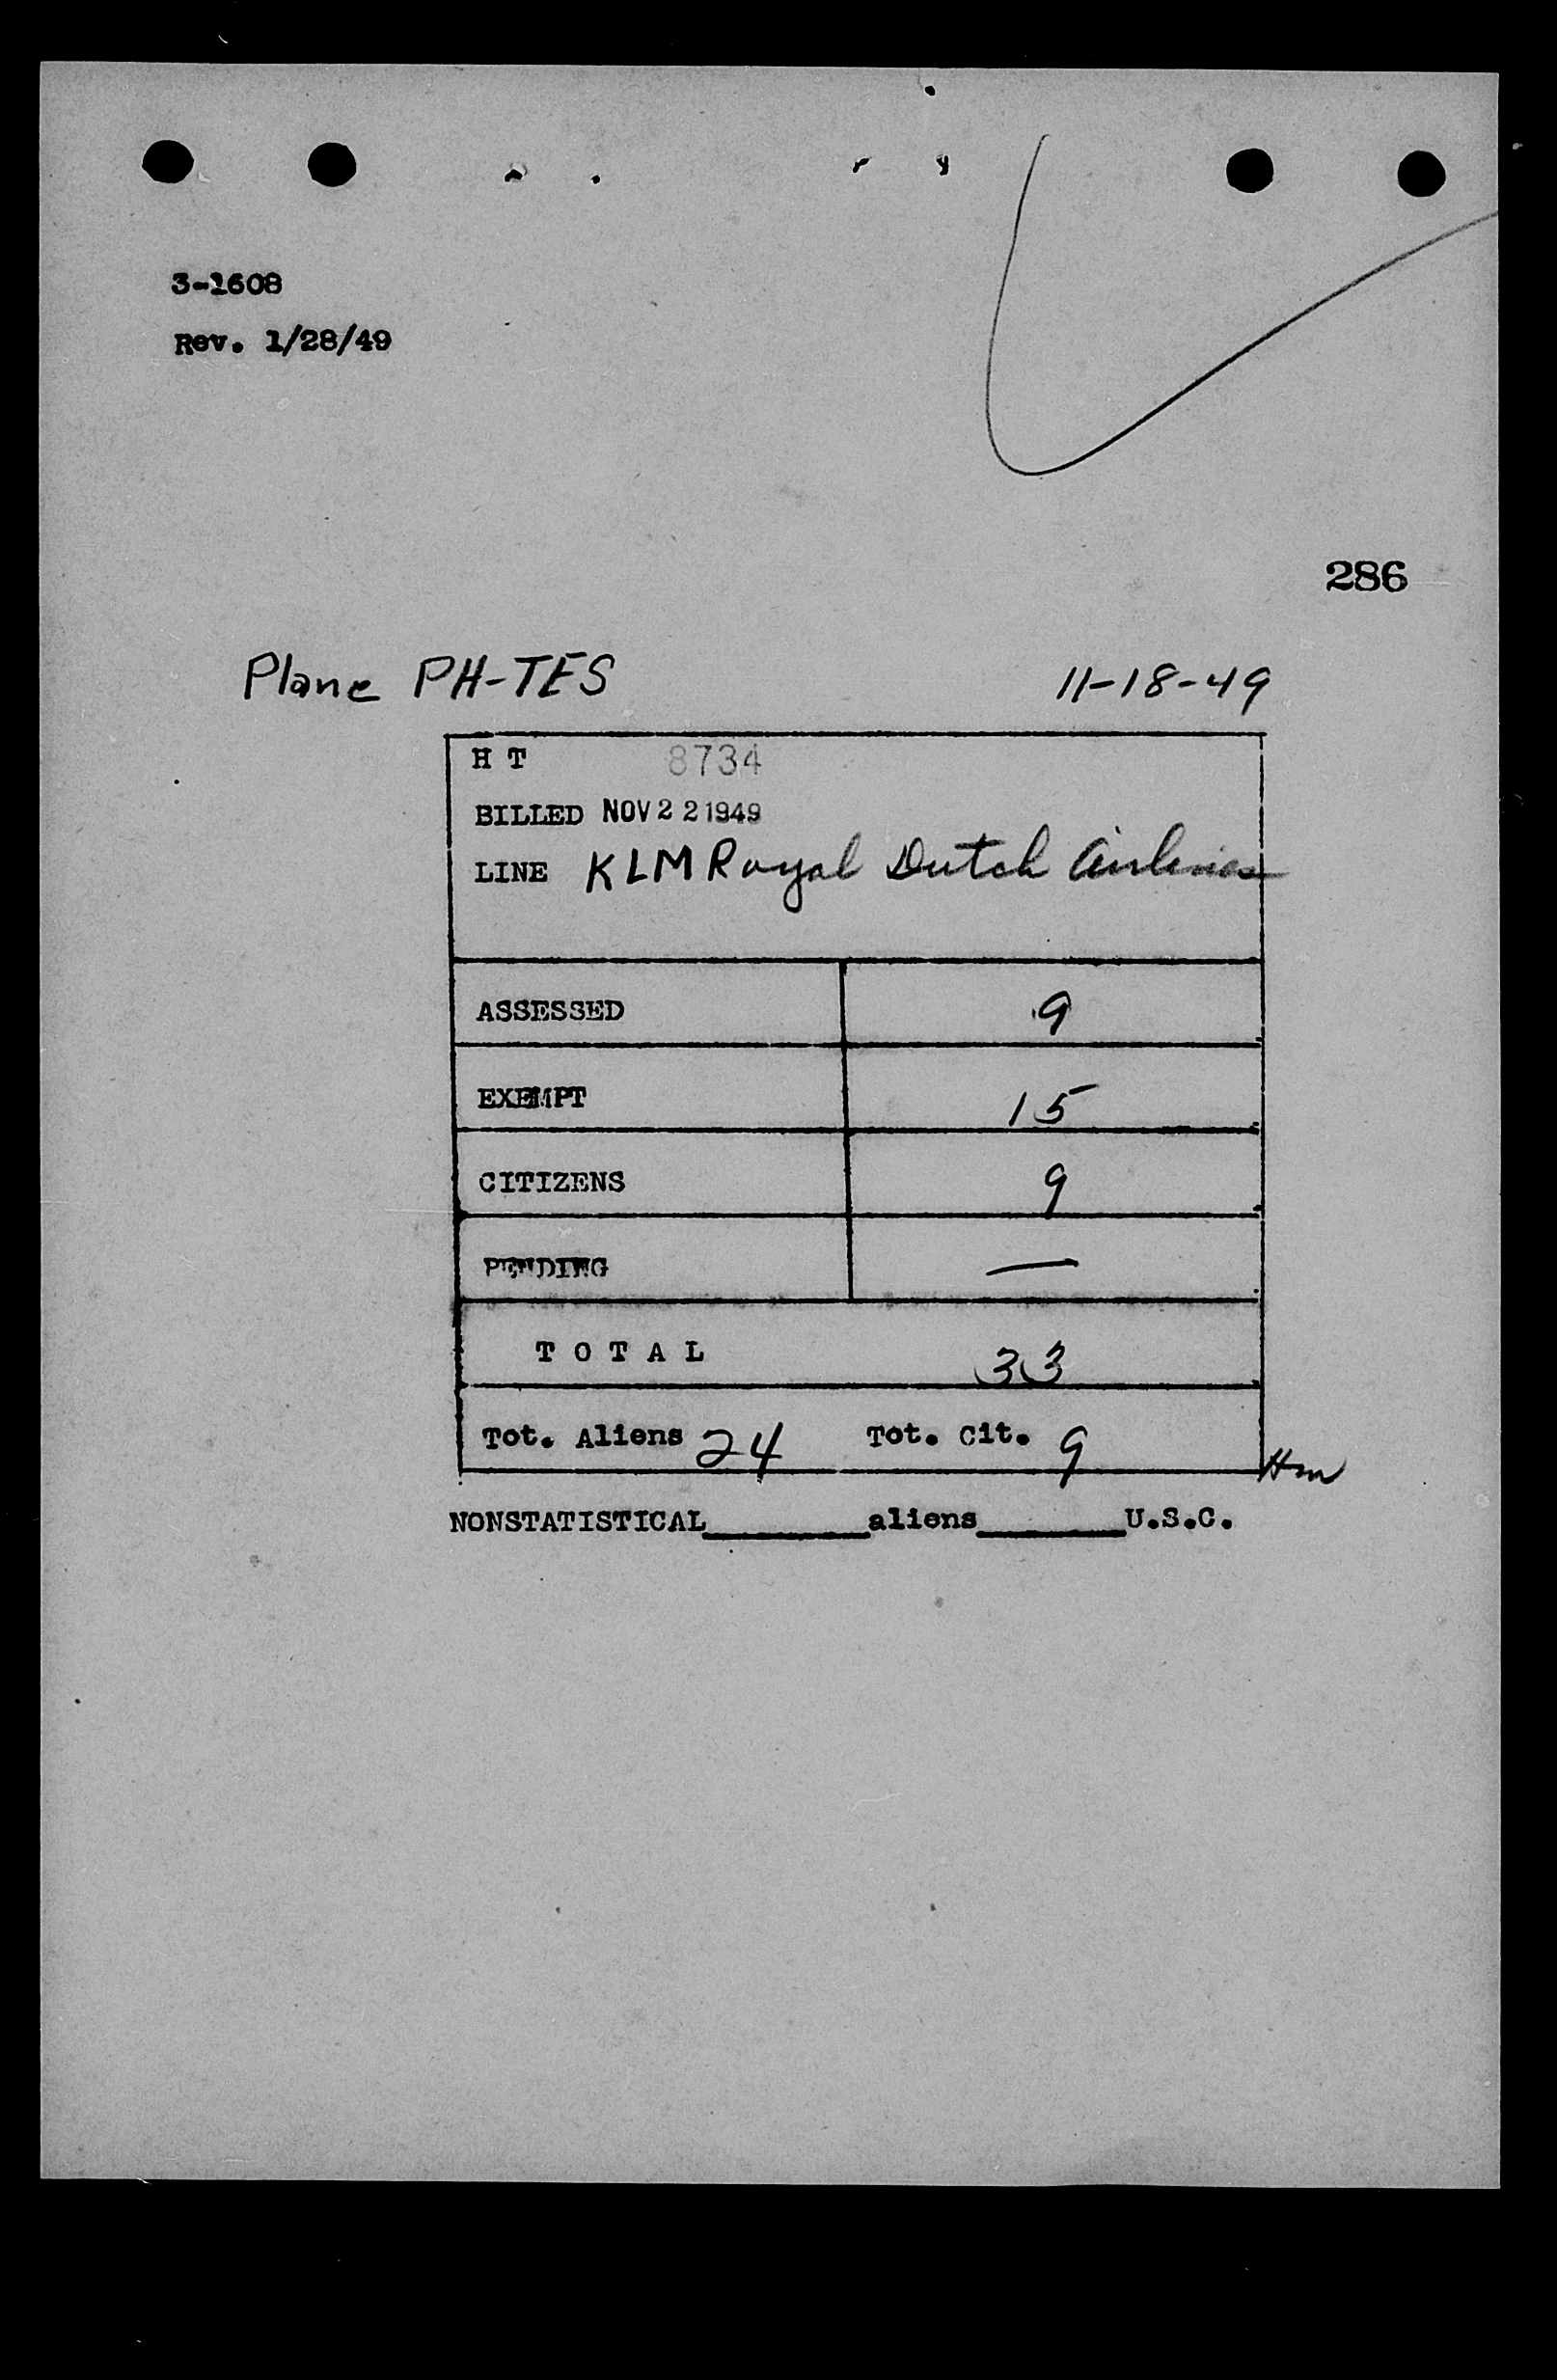 3-1608
Rev. 1/28/49
286
Plane PH-TES 11-18-49
H T 8734
BILLED NOV 22 1949
LINE KLM Royal Dutch Airlines
ASSESSED 9
EXEMPT 15
CITIZENS 9
PENDING —
T O T A L 33
Tot. Aliens 24 Tot. Cit. 9
NONSTATISTICAL________aliens_______U.S.C.